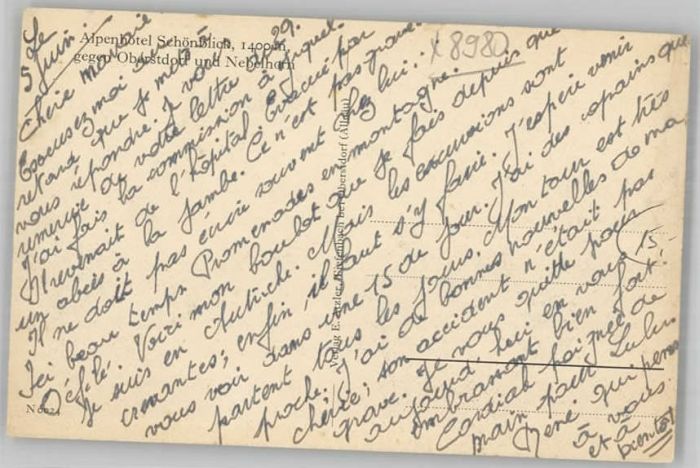 Alpenhotel Schönblick, 1400 m,
gegen Oberstdorf und Nebelhorn
x 8980
Le
5 Juin
29.
Chère marraine
Excusez moi du
retard que je mets à
vous répondre. Je vous
remercie de votre lettre à laquelle
J'ai fais la commission à
Il revenait de l'hôpital évacué par
un abcès à la jambe. Ce n'est pas grave.
Il ne doit pas écrire souvent chez lui.
Ici beau temps. Promenades en montagne.
Défilé. Voici mon boulot que je fais depuis que
je suis en Autriche. Mais les excursions sont
crevantes; enfin il faut s'y faire. J'espère venir
vous voir dans une 15 de jour. J'ai des copains que
partent tous les jours. Mon tour est très
proche. J'ai de bonnes nouvelles de ma
chérie; son accident n'était pas
grave. Je vous quitte pour
aujourd'hui en vous
embrassant bien fort.
Cordiale poignée de
main pour Lulu
René qui pense
à vous.
et à
bientôt
15.-
Verlag E. Atzler, Oberstdorf (Allgäu)